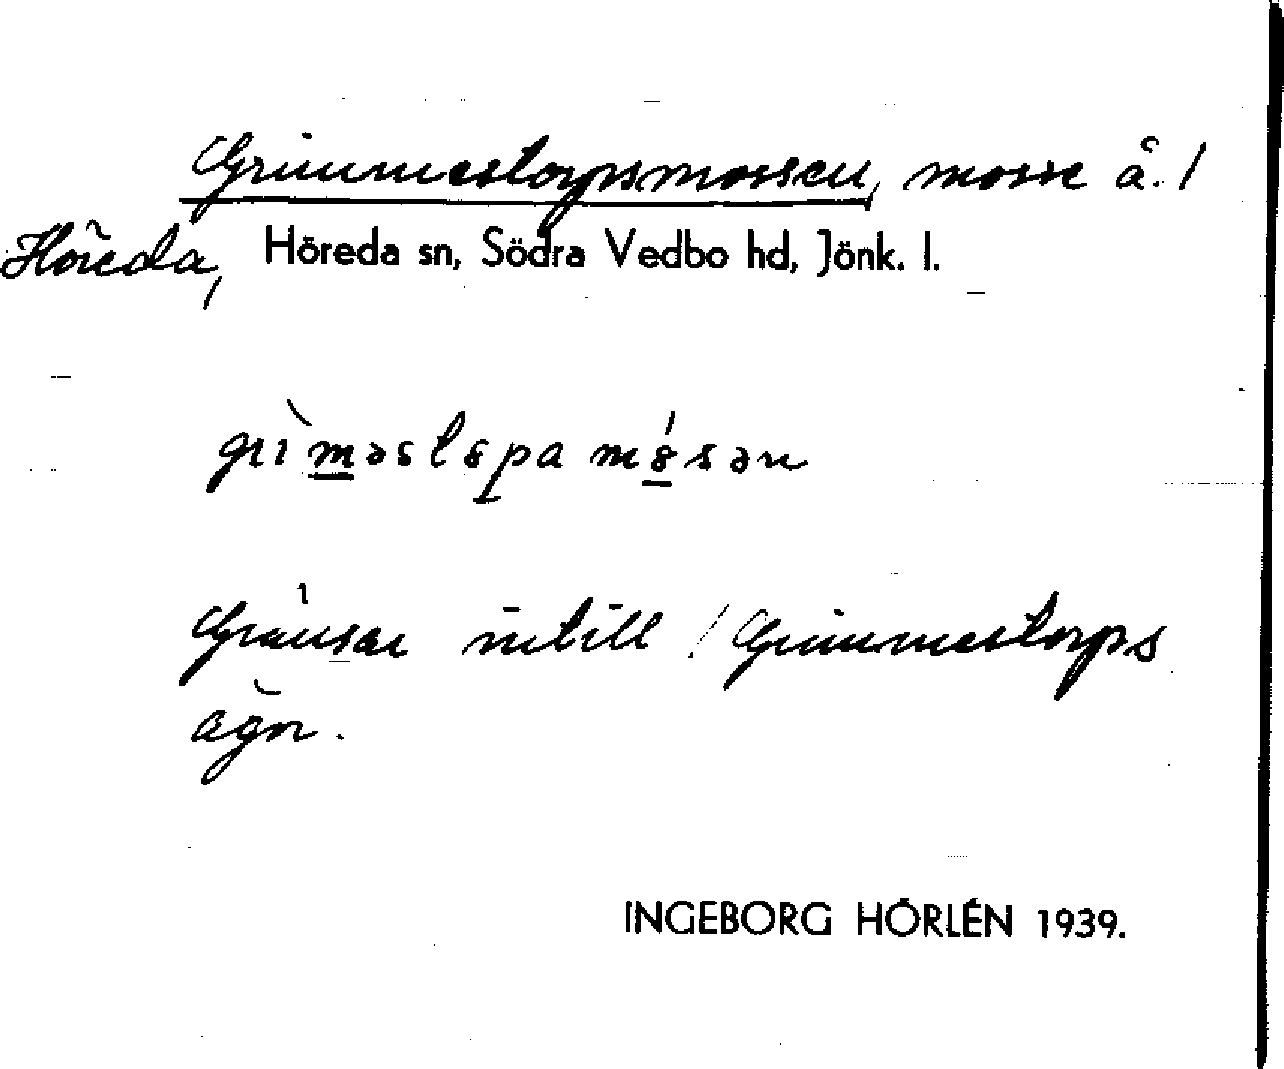 Grimmestorpsmossen, mosse å /
Höreda, Höreda sn, Södra Vedbo hd, Jönk. l.
Gränsar intill / Grimmestorps
ägor.
INGEBORG HÖRLÉN 1939.